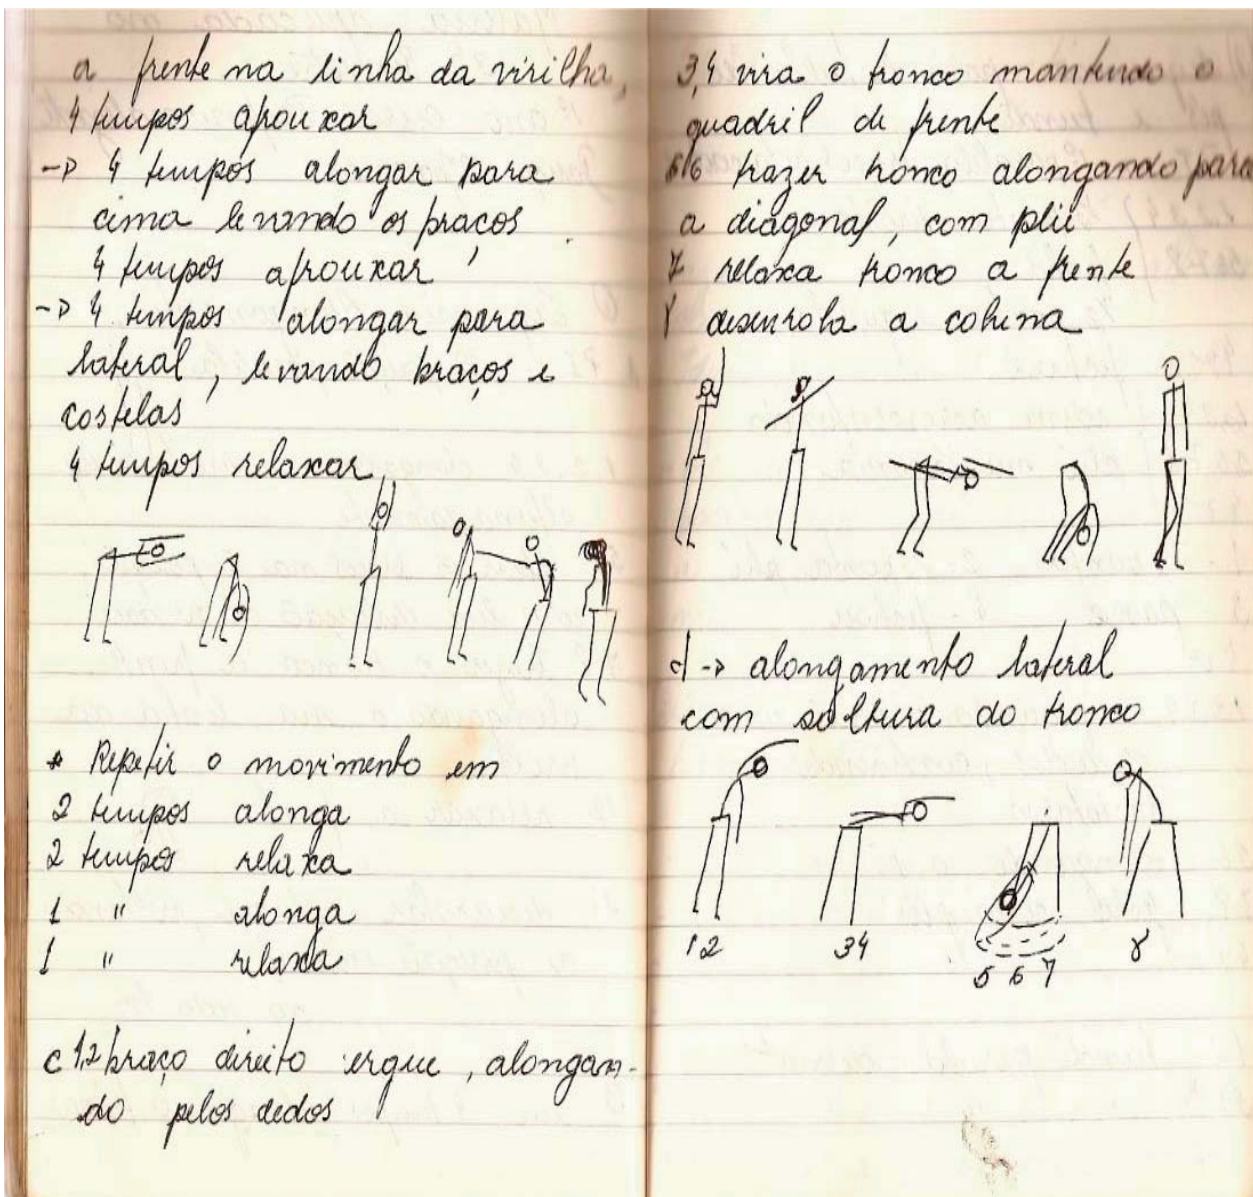 a frente na linha da virilha,
4 tempos afrouxar
-> 4 tempos alongar para
cima levando os braços
4 tempos afrouxar
-> 4 tempos alongar para
lateral, levando braços e
costelas
4 tempos relaxar
* Repetir o movimento em
2 tempos alonga
2 tempos relaxa
1 " alonga
1 " relaxa
c 1,2 braço direito ergue, alongan-
do pelos dedos
3,4 vira o tronco mantendo o
quadril de frente
5/6 trazer tronco alongando para
a diagonal, com plié
7 relaxa tronco a frente
8 desenrola a coluna
d -> alongamento lateral
com soltura do tronco
1 2
3 4
5 6 7
8